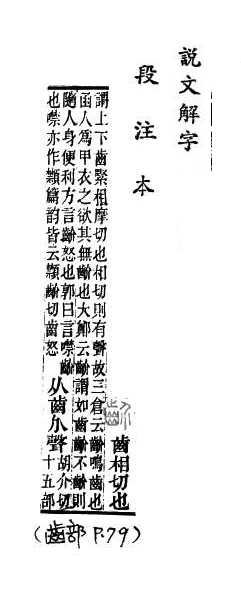 說文解字
段注本
齘 齒相切也
謂上下齒緊相摩切也相切則有聲故三倉云齘鳴齒也
函人爲甲衣之欲其無齘也大鄭云齘謂如齒齘不齘則
隨人身便利方言齘怒也郭曰言噤齘
也噤亦作䫴篇韵皆云䫴齘切齒怒
从齒介聲
胡介切
十五部
(齒部 P.79)